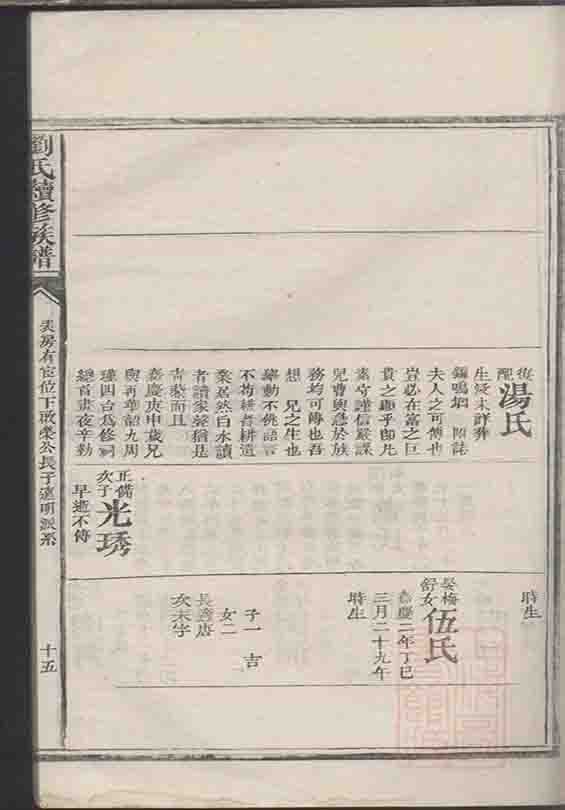 劉氏續修族譜
房有宦位下啟榮公長子遠明派系
十五
配
湯氏
生歿未詳葬
鑼鳴堋
夫人之可傳也
豈必在富之巨
貴之顯乎即凡
素守謹信嚴課
兒曹與急於族
務均可傳也吾
想 兄之生也
舉動不佻語言
不苟耕者耕遺
業居然白水讀
者讀家聲猶是
青藜而且
嘉慶庚申歲兄
與再華韶九周
璉四合為修祠
總首晝夜辛勤
正備
次子
光琇
早逝不傳
時生
娶梅
舒女
伍氏
嘉慶二年丁巳
三月二十九午
時生
子一 吉
女二
長適唐
次未字